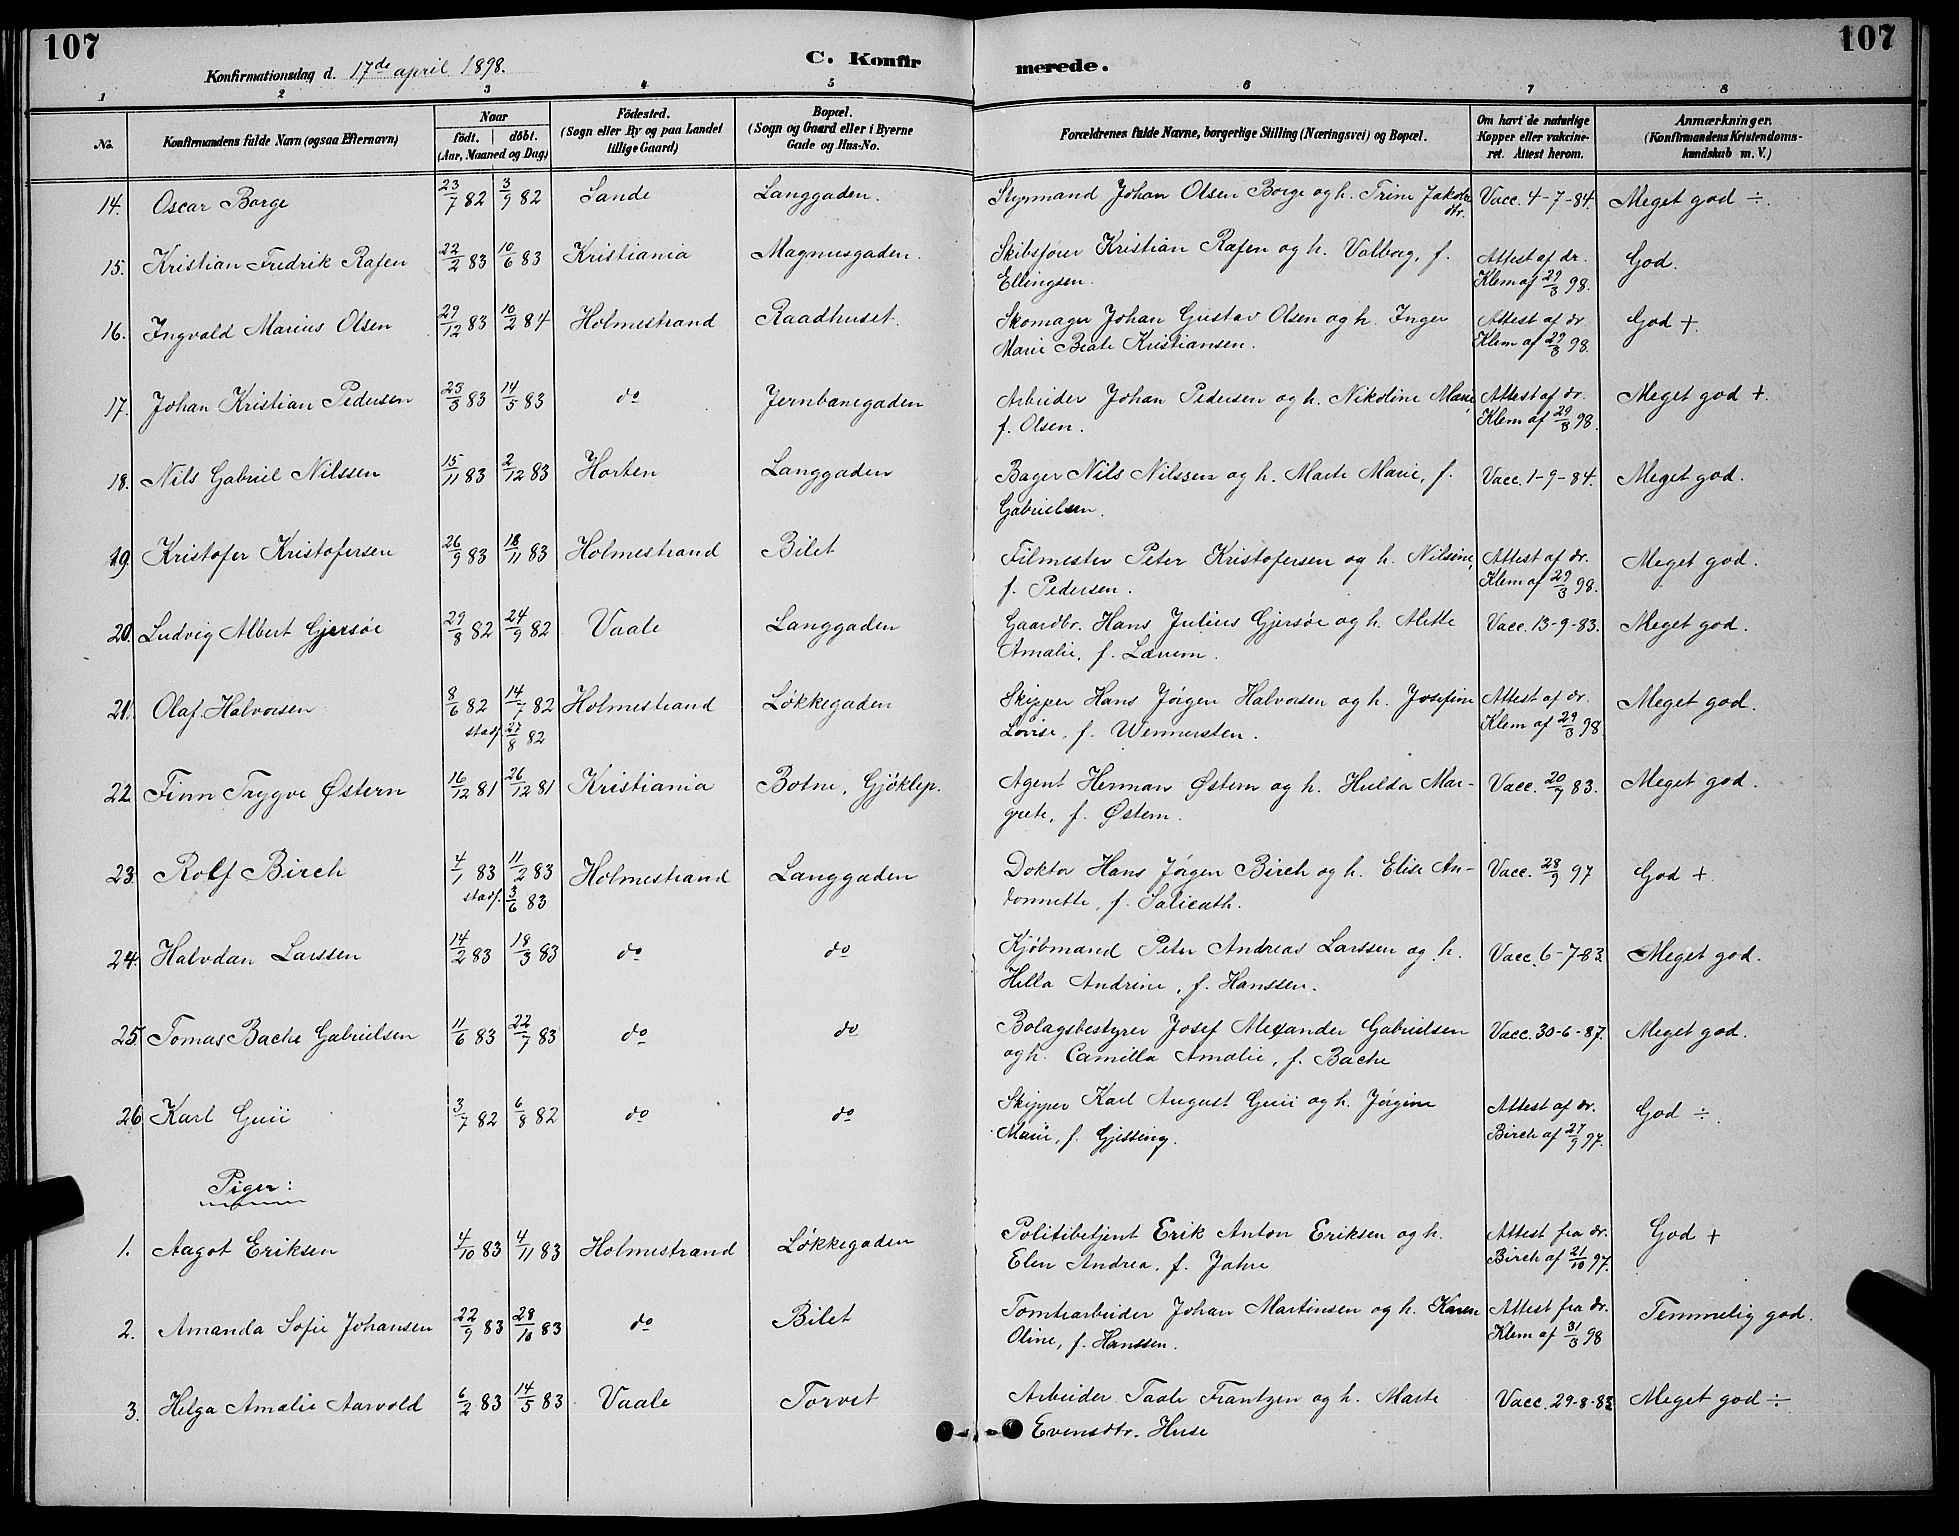 107
107
Konfirmationsdag d. 17de april 1898.
C. Konfirmerede.
1 2 3 4 5 6 7 8
No.
Konfirmandens fulde Navn (ogsaa Efternavn)
Naar
födt. döbt.
(Aar, Maaned og Dag)
Födested.
(Sogn eller By og paa Landet
tillige Gaard)
Bopæl.
(Sogn og Gaard eller i Byerne
Gade og Hus-No.
Forældrenes fulde Navne, borgerlige Stilling (Næringsvei) og Bopæl.
Om havt de naturlige
Kopper eller vakcine-
ret. Attest herom.
Anmærkninger.
(Konfirmandens Kristendoms-
kundskab m. V.)
14. Oscar Borge 23/7 82 3/9 82 Sande Langgaden. Styrmand Johan Olsen Borge og h. Trine Jakobs Vacc. 4-7-84. Meget god ÷.
dtr.
15. Kristian Fredrik Rafen 22/2 83 10/6 83 Kristiania Magnusgaden. Skibsfører Kristian Rafen og h. Valborg, f. Attest af dr. God.
Ellingsen. Klem af 29/3 98.
16. Ingvald Marius Olsen 29/12 83 10/2 84 Holmestrand Raadhuset. Skomager Johan Gustav Olsen og h. Inger Attest af dr. God +.
Marie Beate Kristiansen. Klem af 29/3 98.
17. Johan Kristian Pedersen 23/3 83 14/5 83 do Jernbanegaden Arbeider Johan Pedersen og h. Nikoline Marie, Attest af dr. Meget god +.
f. Olsen. Klem af 29/3 98.
18. Nils Gabriel Nilssen 15/11 83 2/12 83 Horten Langgaden Bager Nils Nilssen og h. Marte Marie, f. Vacc. 1-9-84. Meget god.
Gabrielsen.
19. Kristofer Kristofersen 26/9 83 18/11 83 Holmestrand Bilet Filmester Peter Kristofersen og h. Nilsine, Attest af dr. Meget god.
f. Pedersen. Klem af 29/3 98.
20. Ludvig Albert Gjersøe 29/8 82 24/9 82 Vaale Langgaden Gaardbr. Hans Julius Gjersøe og h. Alette Vacc. 13-9-83. Meget god.
Amalie, f. Lærum.
21. Olaf Halvorsen 8/6 82 14/7 82 Holmestrand Løkkegaden Skipper Hans Jørgen Halvorsen og h. Josefine Attest af dr. Meget god.
stadf. 27/8 82 Lovise, f. Wennersten. Klem af 29/3 98.
22. Finn Trygve Østern 16/12 81 26/12 81 Kristiania Botne, Gjøklep. Agent Herman Østern og h. Hulda Mar- Vacc. 20/7 83. Meget god.
grete, f. Østern.
23. Rolf Birch 4/1 83 11/2 83 Holmestrand Langgaden Doktor Hans Jørgen Birch og h. Elise An- Vacc. 28/9 97 God +.
stadf. 3/6 83 tonnette, f. Salicath.
24. Halvdan Larssen 14/2 83 18/3 83 do do Kjøbmand Peter Andreas Larssen og h. Vacc. 6-7-83. Meget god.
Hella Andrine, f. Hanssen.
25. Tomas Bache Gabrielsen 11/6 83 22/7 83 do do Bolagsbestyrer Josef Alexander Gabrielsen Vacc. 30-6-87. Meget god.
og h. Camilla Amalie, f. Bache
26 Karl Guii 3/7 82 6/8 82 do do Skipper Karl August Guii og h. Jørgine Attest af dr. God ÷.
Marie, f. Gjessing. Birch af 27/9 97.
Piger:
1. Aagot Eriksen 4/10 83 4/11 83 Holmestrand Løkkegaden Politibetjent Erik Anton Eriksen og h. Attest fra dr. God +
Elen Andrea, f. Jahre Birch af 21/10 97.
2. Amanda Sofie Johansen 22/9 83 28/10 83 do Bilet Tomtearbeider Johan Martinsen og h. Karen Attest fra dr. Temmelig god.
Oline, f. Hanssen. Klem af 31/3 98
3. Helga Amalie Aarvold 6/2 83 14/5 83 Vaale Torvet Arbeider Taale Frantzen og h. Marte Vacc. 29-8-83 Meget god ÷
Evensdtr. Huse